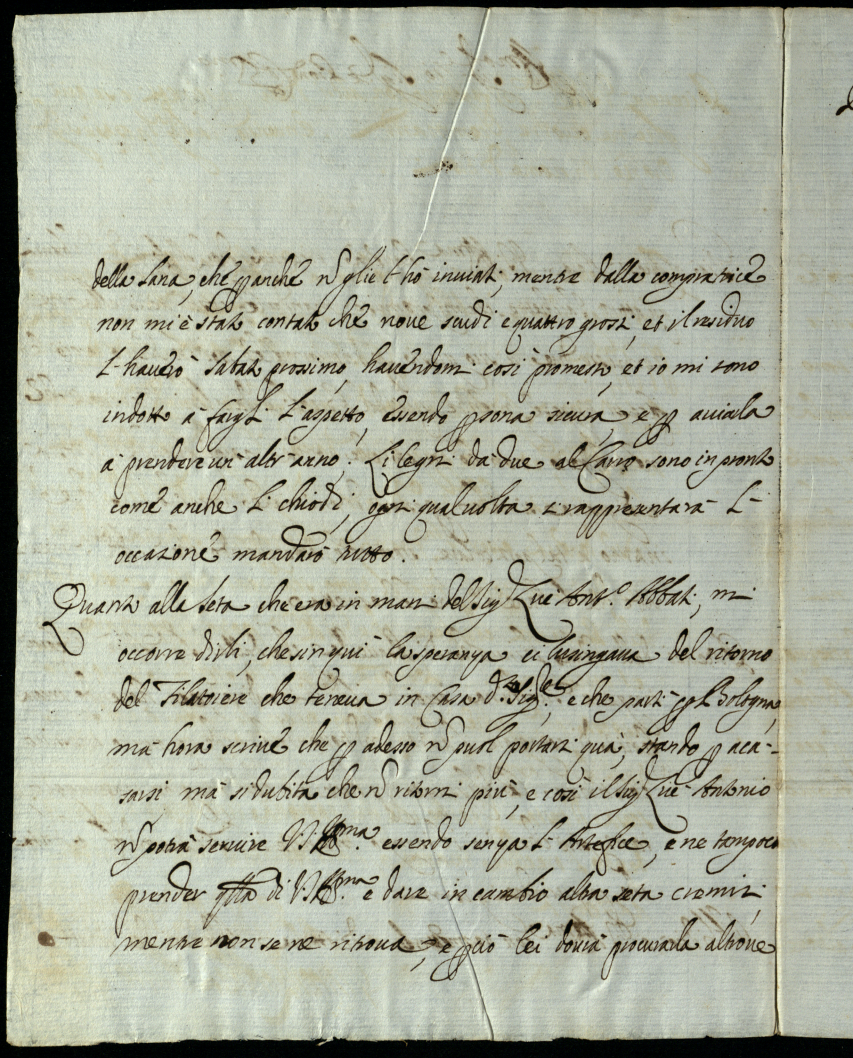 della lana, che p anche ñ glie l'hò inviati, mentre dalla compratrice
non mi è stato contato che nove scudi e quattro grossi, et il residuo
l'haverò sabato prossimo, havendomi così promesso, et io mi sono
indotto à fargli l'aspetto, essendo psona sicura, e p aviarla
à prendere un altr'anno. Li legni da due al Carro sono in pronto
come anche li chiodi, ogni qualvolta si rappresentarà l'
occasione mandarò tutto.
Quanto alla seta che era in mano del Sig.r Ant.o Abbati, mi
occorre dirli, che sin qui la speranza ci lusingava del ritorno
del Filatoiere che teneva in Casa d.o Sig.re, e che partì p Bologna,
mà hora scrive che p adesso ñ puol portarsi quà, stando p aca-
sarsi mà si dubita che ñ ritorni più, e così il Sig.r Antonio
ñ potrà servire V.S. Ill.ma essendo senza l'Artefice, e ne tampoco
prender qlla di V.S. Ill.ma e dare in cambio altra seta cremisi
mentre non se ne ritrova, e pciò lei dovrà procurarla altrove